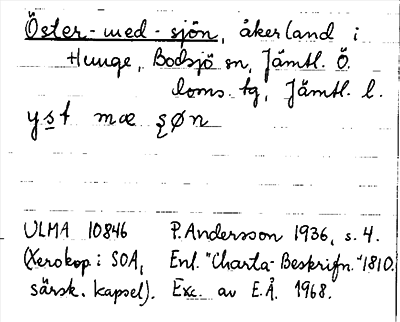 Öster-med-sjön, åkerland i
Hunge, Bodsjö sn, Jämtl. Ö.
doms. tg, Jämtl. l.
yst mæ ʂøn
ULMA 10846 P. Andersson 1936, s. 4.
(Xerokop. i SOA, Enl. "Charta-Beskrifn." 1810.
särsk. kapsel). Exc. av E.Å. 1968.